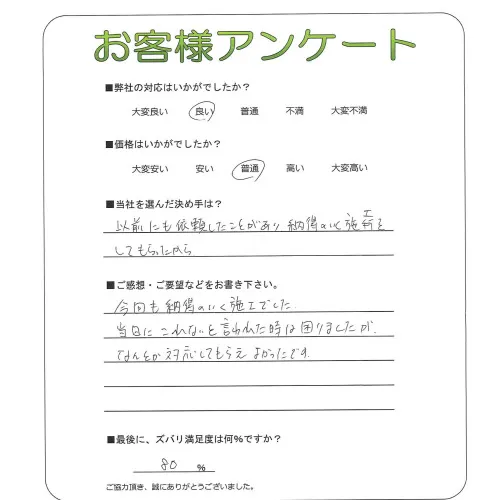 お客様アンケート
■弊社の対応はいかがでしたか？
大変良い 良い 普通 不満 大変不満
■価格はいかがでしたか？
大変安い 安い 普通 高い 大変高い
■当社を選んだ決め手は？
以前にも依頼したことがあり納得のいく施工を
してもらったから
■ご感想・ご要望などをお書き下さい。
今回も納得のいく施工でした。
当日にこれないと言われた時は困りましたが、
なんとか対応してもらえよかったです。
■最後に、ズバリ満足度は何%ですか？
80 %
ご協力頂き、誠にありがとうございました。